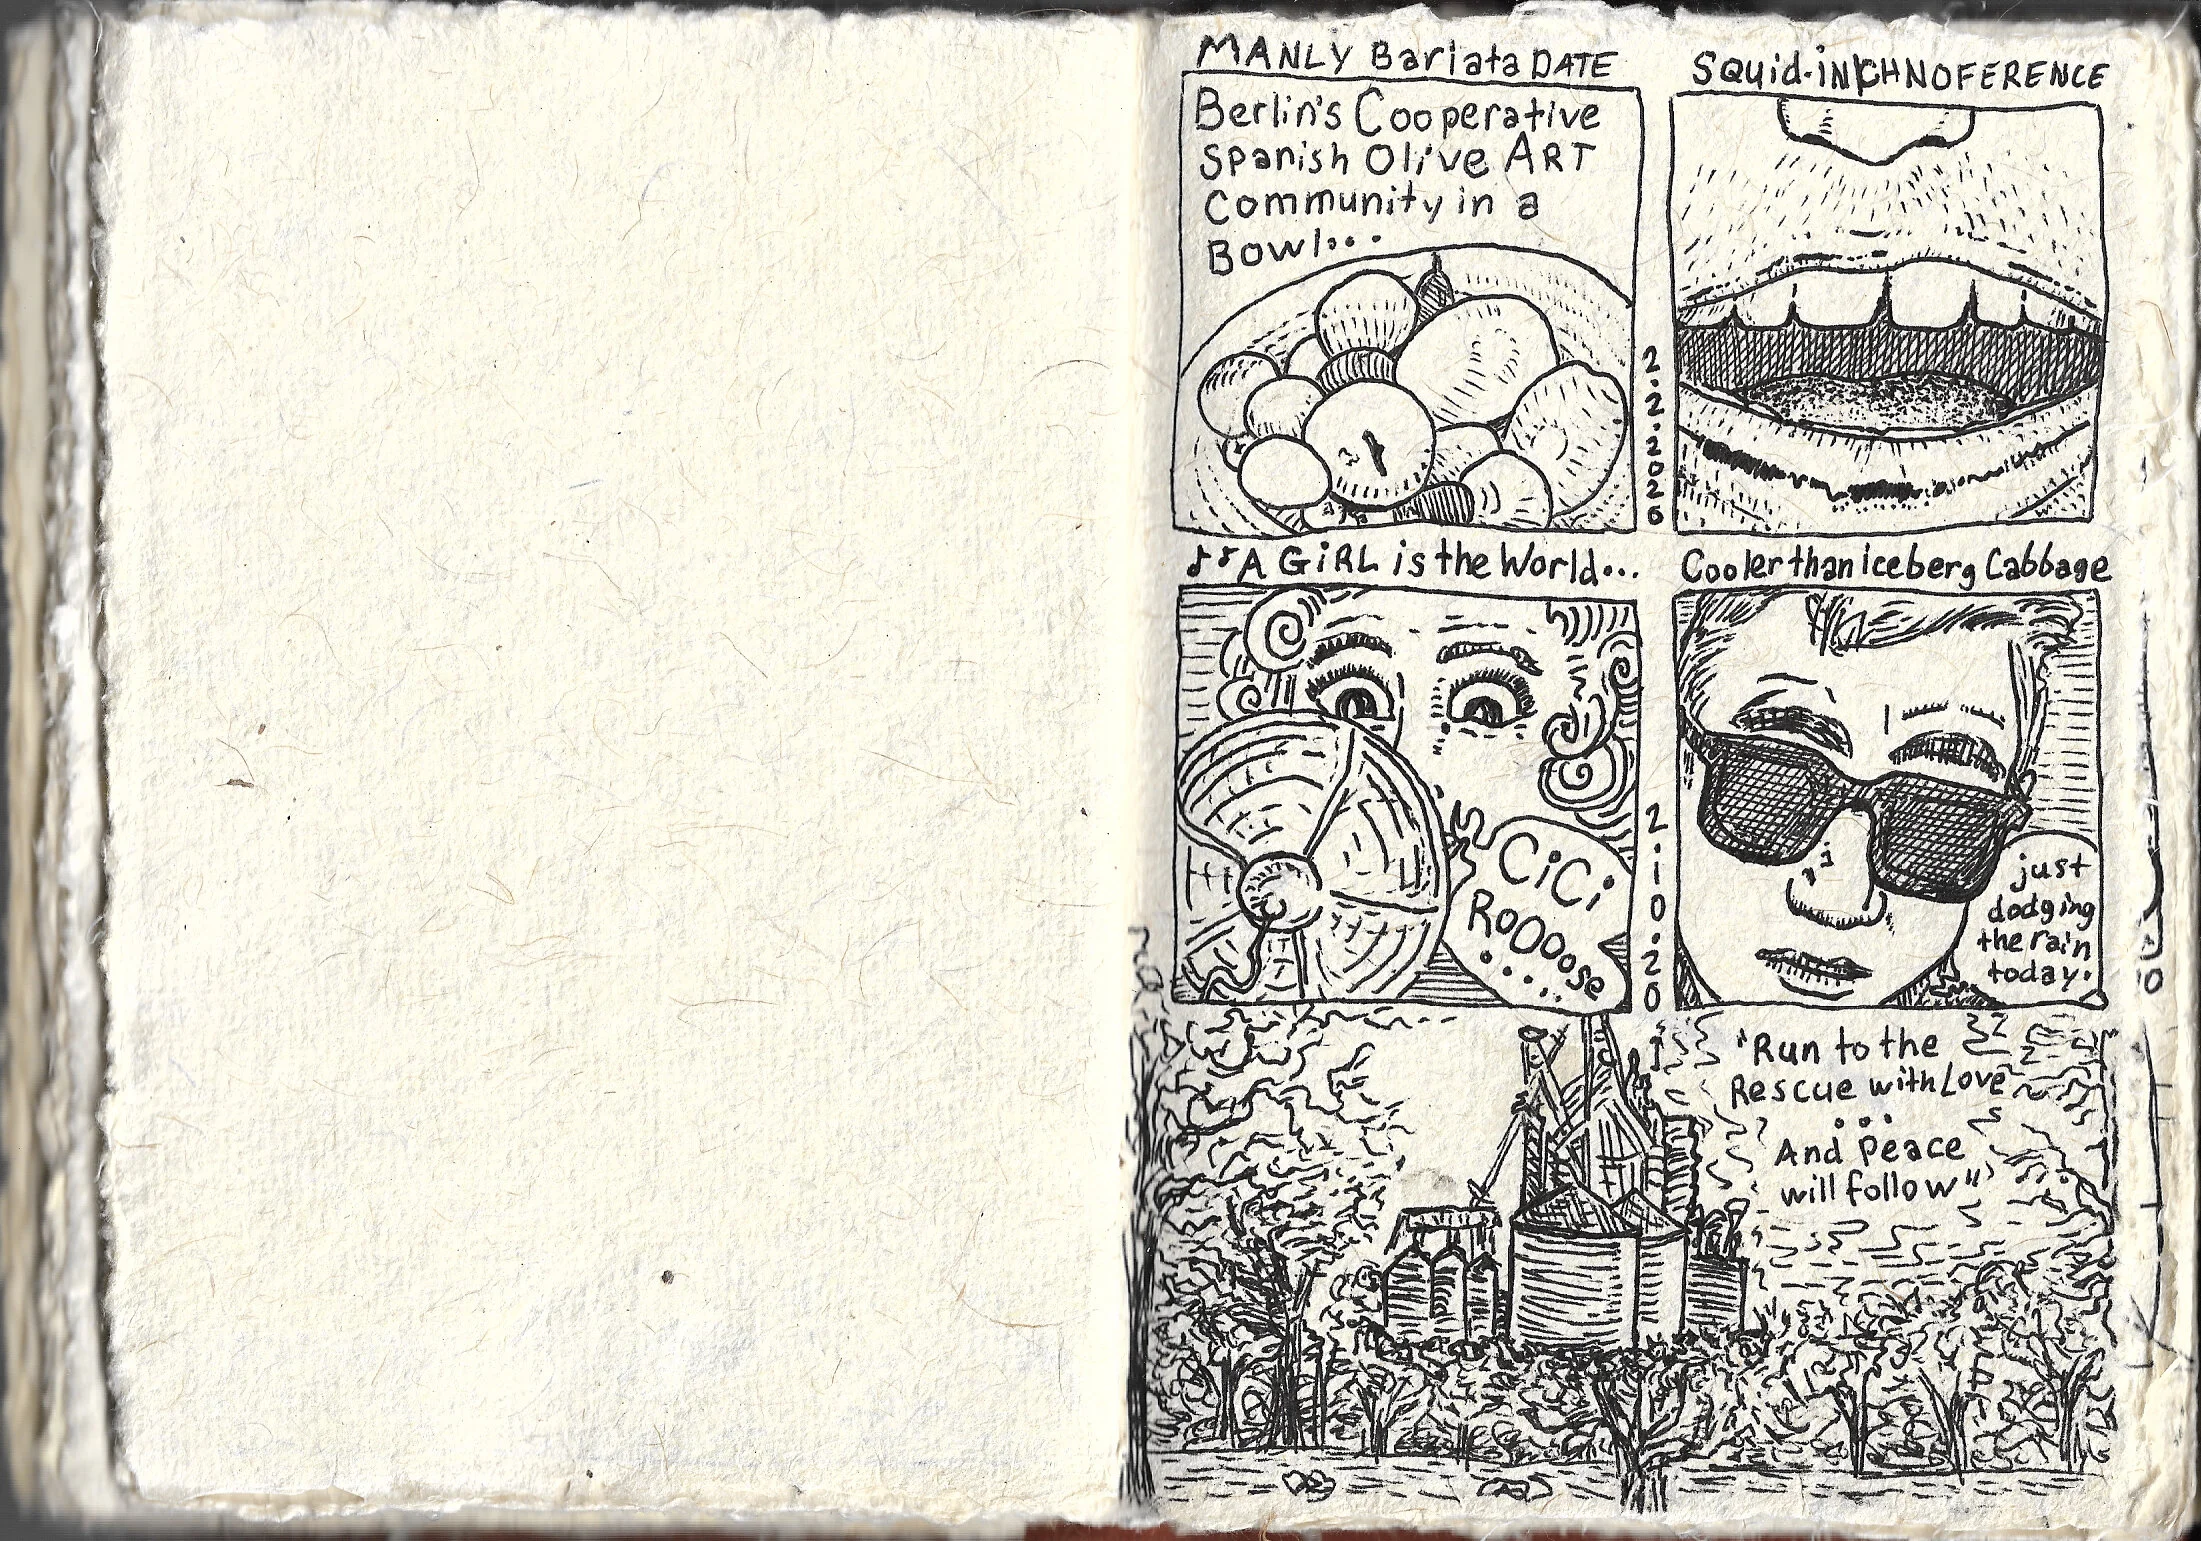 MANLY BariataDATE
Berlin's Cooperative
Spanish Olive ART
Community in a
Bowl...
2.2.2026
Squid-iNKCHNOFERENCE
♪♪A GiRL is the World...
CiCi
ROOOose
.....
2.10.20
Cooler than Iceberg Cabbage
just
dodging
the rain
today.
"Run to the
Rescue with Love
...
And peace
will follow"